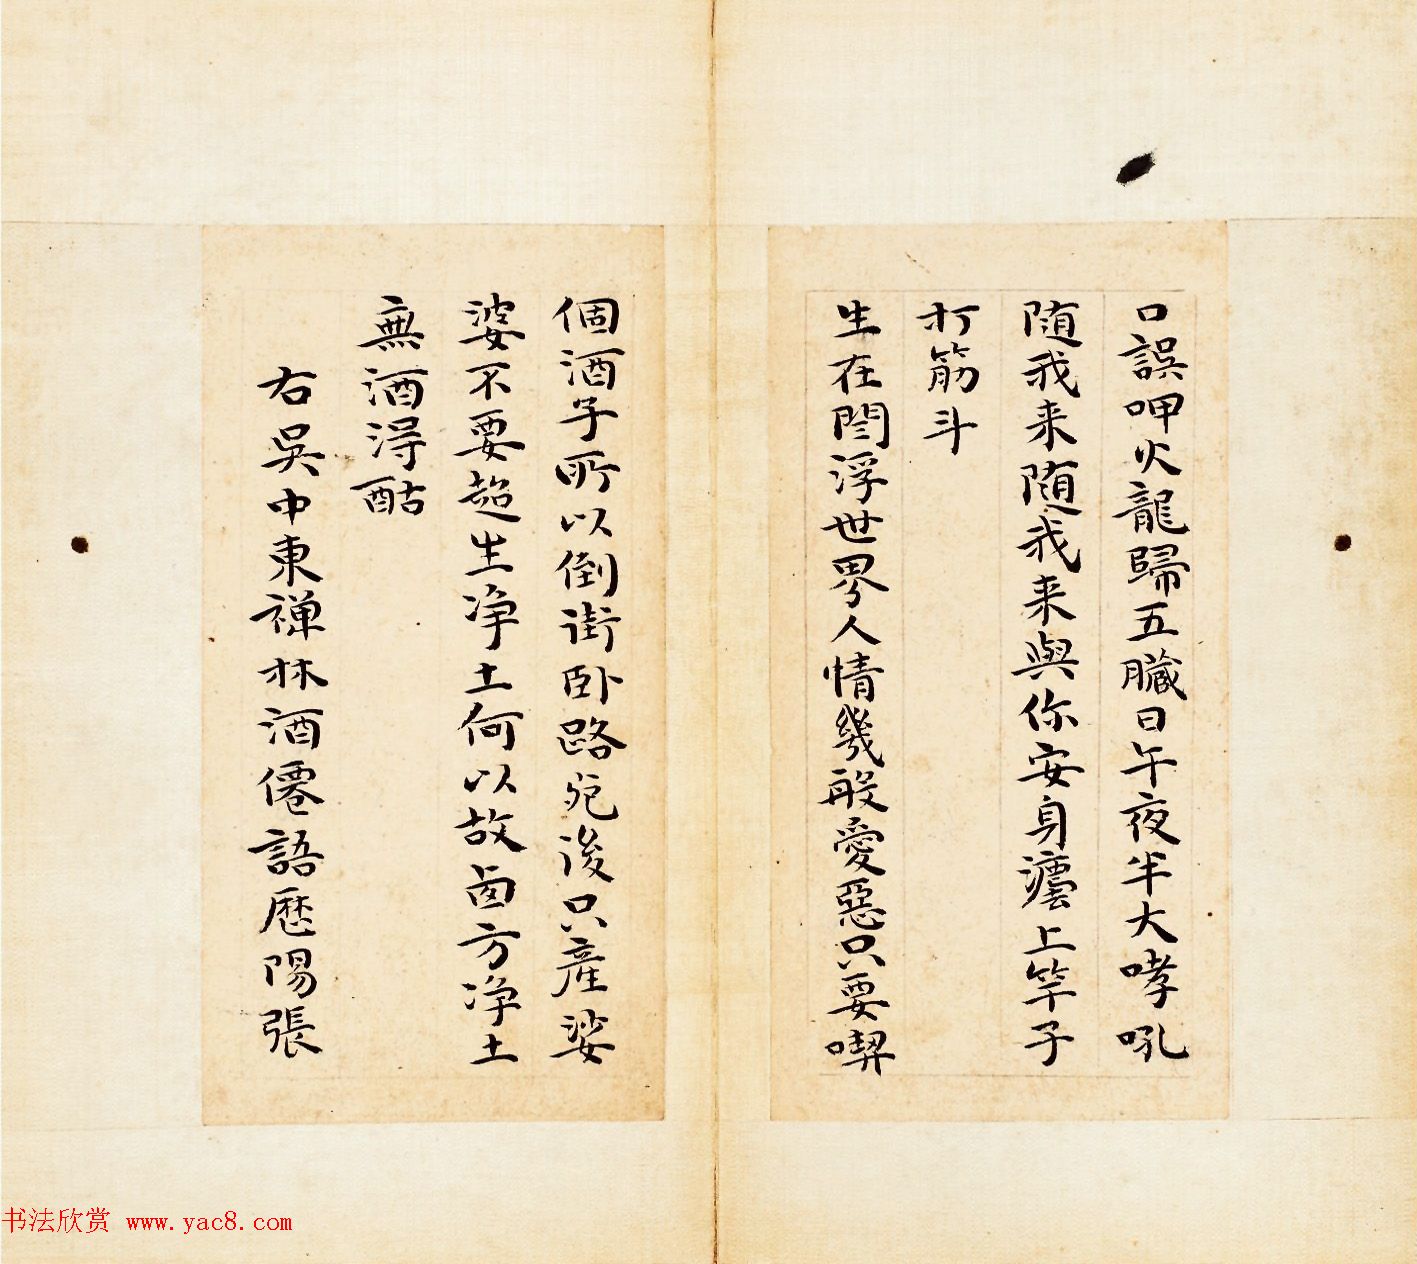 口誤呷火龍歸五臟日午夜半大哮吼
随我来随我来與你安身法上竿子
打筋斗
生在閻浮世界人情幾般愛惡只要喫
個酒子所以倒街卧路死後只産娑
婆不要超生浄土何以故西方浄土
無酒得酤
右吳中東禅林酒僊語歷陽張
书法欣赏 www.yac8.com